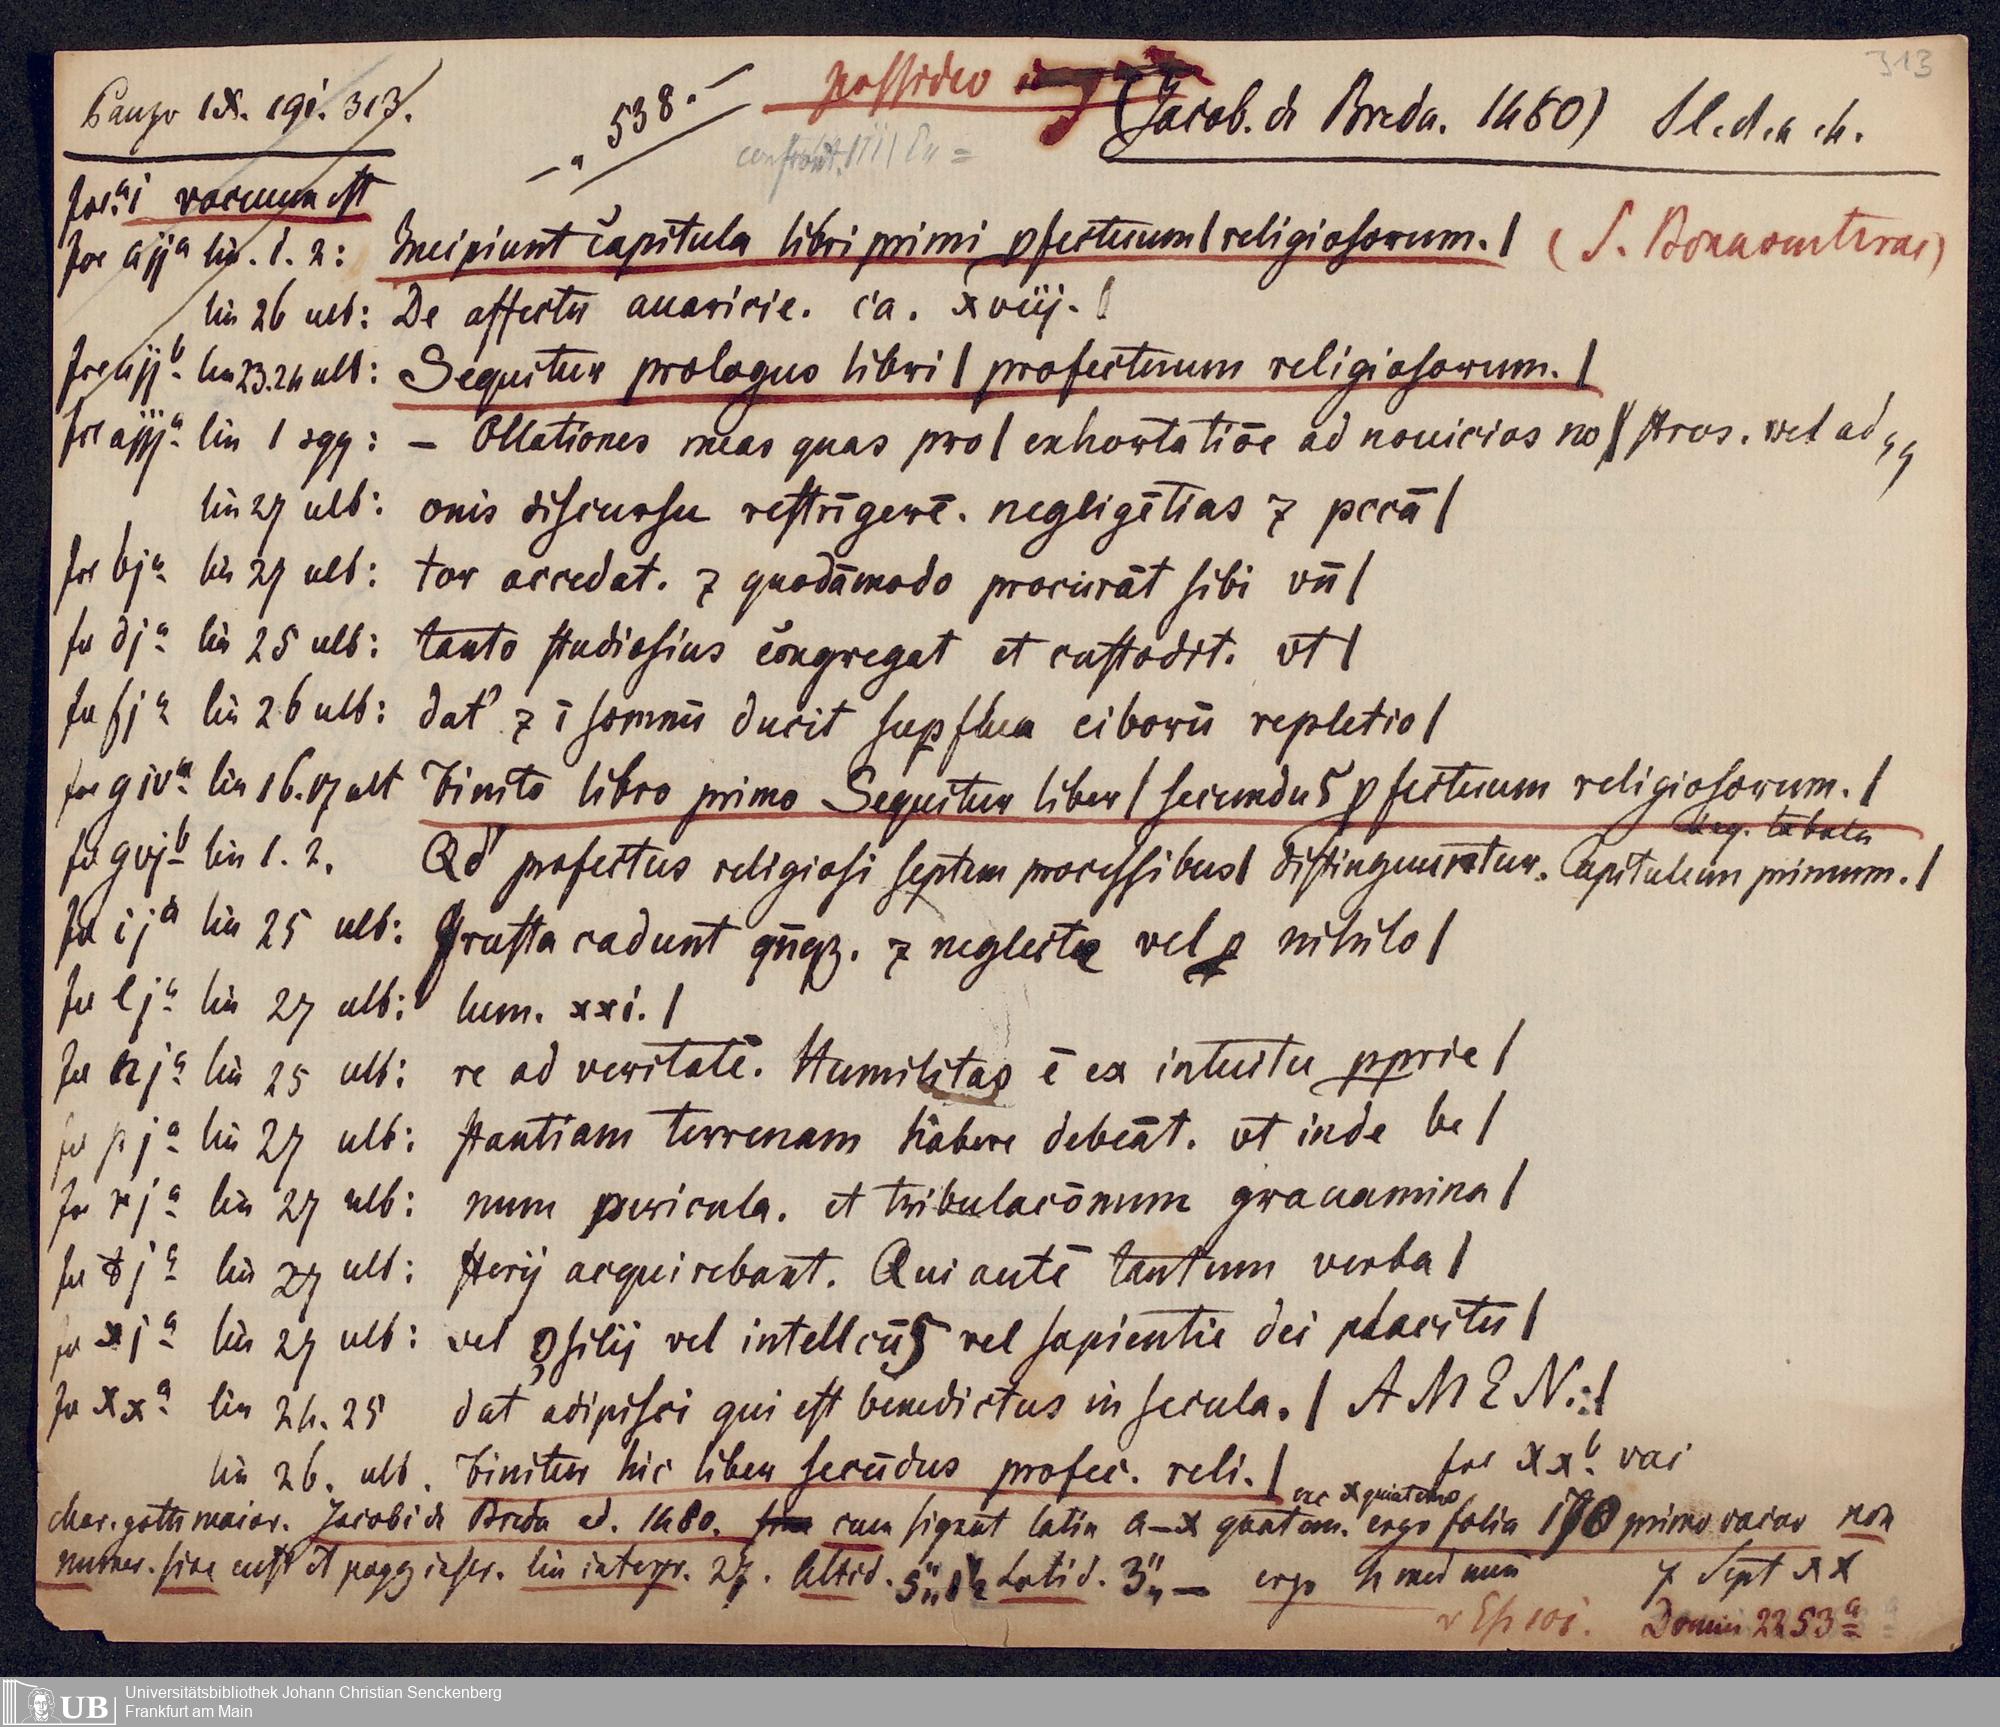 Panzr IX. 191. 313.
538.
possideo
(Jacob. de Breda. 1480) S l. et a ch.
313
foe aj vacuum est
foe aija lin. 1. 2: Incipiunt capitula libri primi pfectuum | religiosorum. | (S. Bonaventurae)
lin 26 ult: De affectu auaricie. ca. xviij. |
foe aijb lin 23.24 ult: Sequitur prologus libri | profectuum religiosorum. |
foe aiija lin 1 sqq: — Ollationes meas quas pro | exhortatiōe ad nouicios no | stros. vel ad
lin 27 ult: onis discursu restrīgerē. negligētias ⁊ pccā |
foe bja lin 27 ult: tor accedat. ⁊ quodāmodo procurāt sibi vñ |
fo dja lin 25 ult: tanto studiosius congregat et custodit. vt |
fo fja lin 26 ult: dat' ⁊ ī somnū ducit supflua ciborū repletio |
foe giva lin 16.17 ult Finito libro primo Sequitur liber | secundus pfectuum religiosorum. |
seq. tabula
fo gvjb lin 1. 2. Qd' profectus religiosi septem processibus | distinguuntur. Capitulum primum. |
fo ija lin 25 ult: frusta cadunt qñqz. ⁊ neglecta vel p nihilo |
fo lja lin 27 ult: lum. xxi. |
fo nja lin 25 ult: re ad veritatē. Humilitas ē ex intuitu pprie |
fo pja lin 27 ult: stantiam terrenam habere debeāt. vt inde be |
fo rja lin 27 ult: num pericula. et tribulacōnum grauamina |
fo tja lin 27 ult: sterij acquirebant. Qui autē tantum verba |
fo xja lin 27 ult: vel ꝯsilij vel intellcūs vel sapientie dei placitū |
fo xxa lin 24. 25 dat adipisci qui est benedictus in secula. | A M E N.: |
lin 26. ult. Finitur hic liber secūdus profec. reli. | foe xxb. vac
char. goth maior. Jacobi de Breda ed. 1480. cum signat latin a–x quatern. ergo folia 170 primo vacuo non
numer. sine cust et pagg inscr. lin integr. 27. Altid. 5" Latid. 3" — ergo 4 med min 7 Sept xx
Domin 2253a
Universitätsbibliothek Johann Christian Senckenberg
Frankfurt am Main
UB